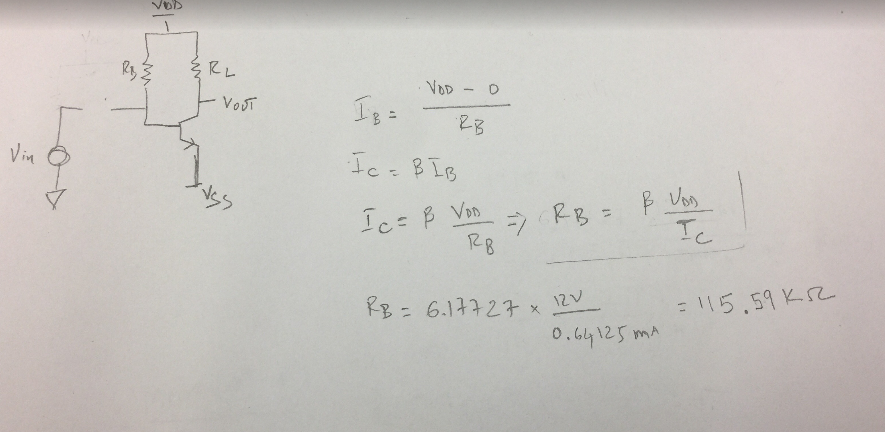 VDD
RB
RL
VOUT
Vin
VSS
IB = VDD - 0 / RB
IC = βIB
IC = β VDD / RB ⇒ RB = β VDD / IC
RB = 6.17727 × 12V / 0.64125 mA = 115.59 KΩ